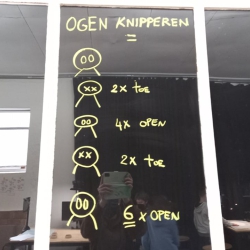 OGEN KNIPPEREN
=
2x toe
4x OPEN
2x toe
6 x OPEN